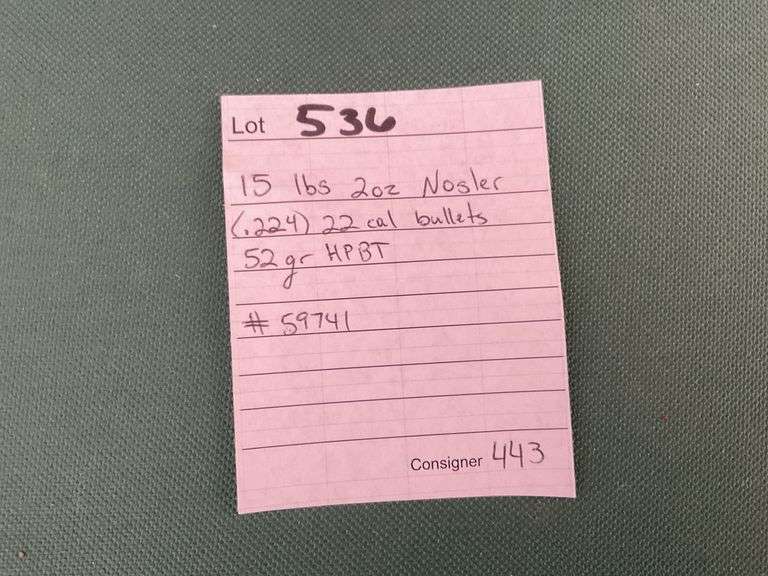 Lot 536
15 lbs 2oz Nosler
(.224) 22 cal bullets
52 gr HPBT
# 59741
Consigner 443